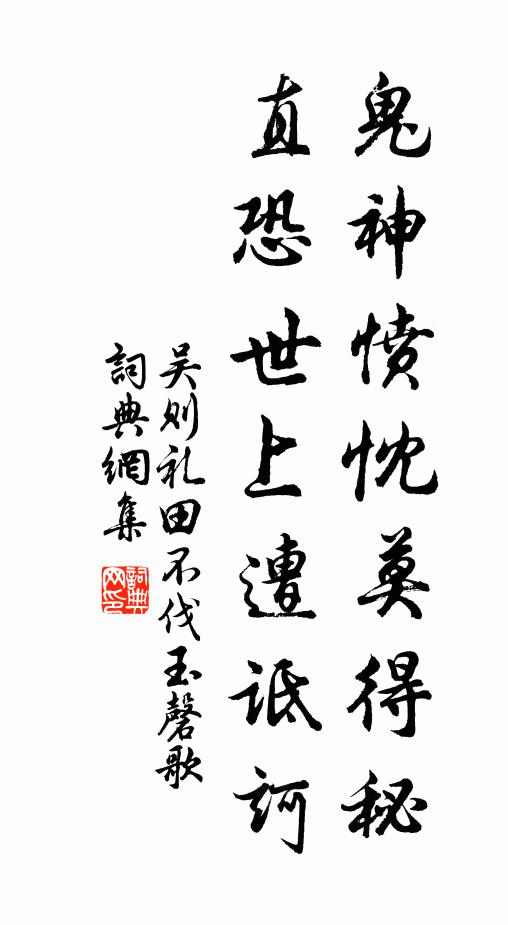 鬼神憤忱莫得秘
直恐世上遭詆訶
吴则礼田不伐玉磬歌
詞典網集
詞典網印